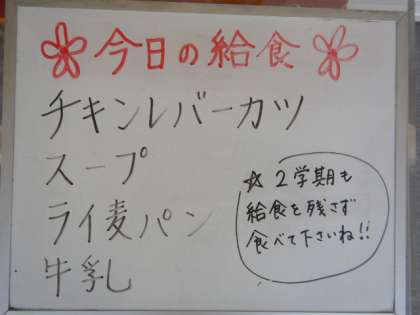 今日の給食
チキンレバーカツ
スープ
ライ麦パン
牛乳
☆2学期も
給食を残さず
食べて下さいね!!